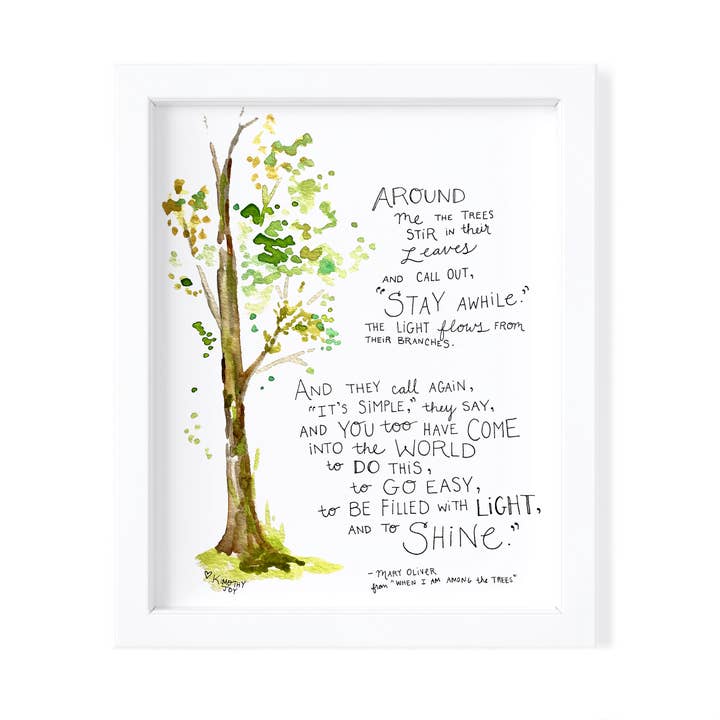 AROUND
me THE TREES
STIR in their
Leaves
AND CALL OUT,
"STAY AWHILE."
THE LIGHT flows FROM
THEIR BRANCHES.
AND THEY call AGAIN,
"IT'S SIMPLE," they SAY,
AND YOU too HAVE COME
INTO the WORLD
to DO THIS,
to GO EASY,
to BE FILLED WITH LIGHT,
AND TO SHINE."
- MARY OLIVER
from "WHEN I AM AMONG the TREES"
♡KIMOTHY
JOY